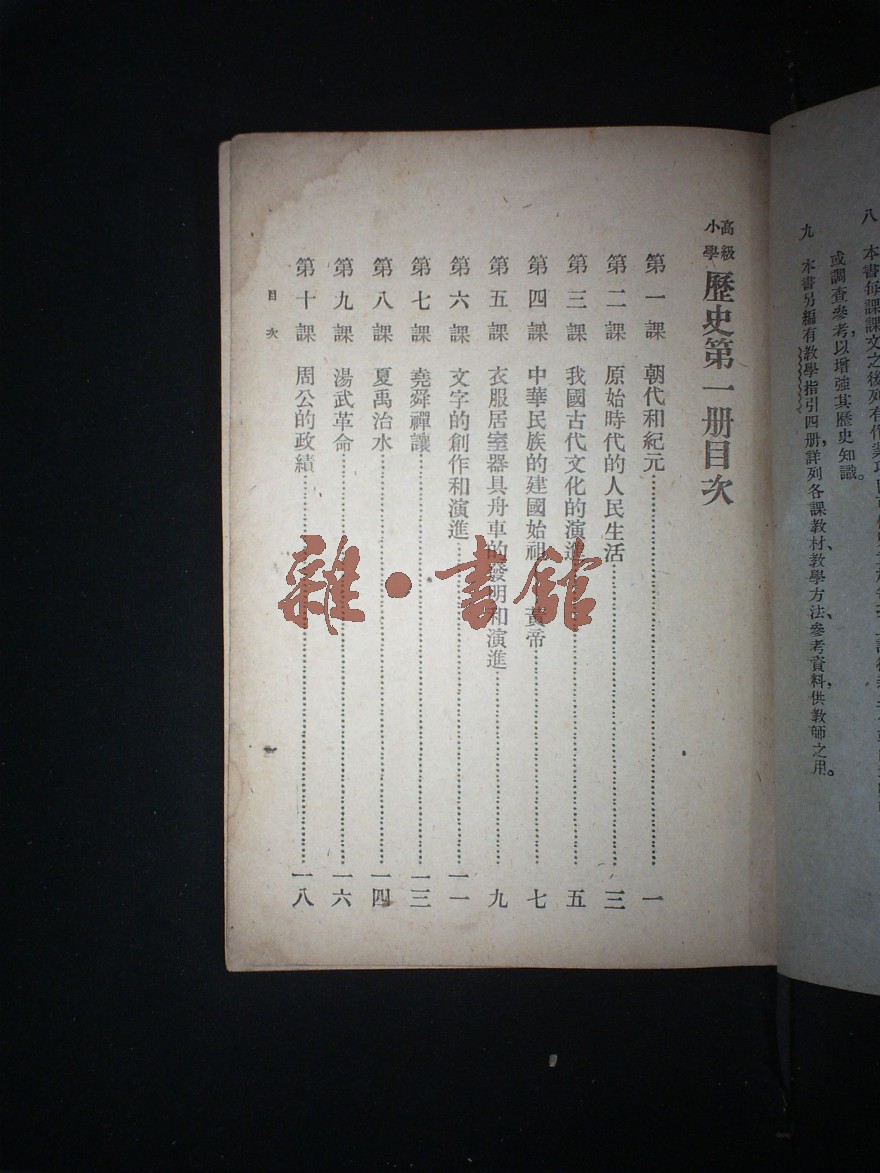 八　本書每課課文之後列有作業
或調查參考，以增強其歷史知識。
九　本書另編有教學指引四册，詳列各課教材、教學方法、參考資料，供教師之用。
高級小學 歷史第一册目次
第一課　朝代和紀元……一
第二課　原始時代的人民生活……三
第三課　我國古代文化的演進……五
第四課　中華民族的建國始祖 黃帝……七
第五課　衣服居室器具舟車的發明和演進……九
第六課　文字的創作和演進……一一
第七課　堯舜禪讓……一三
第八課　夏禹治水……一四
第九課　湯武革命……一六
第十課　周公的政績……一八
目次
一
雜·書館